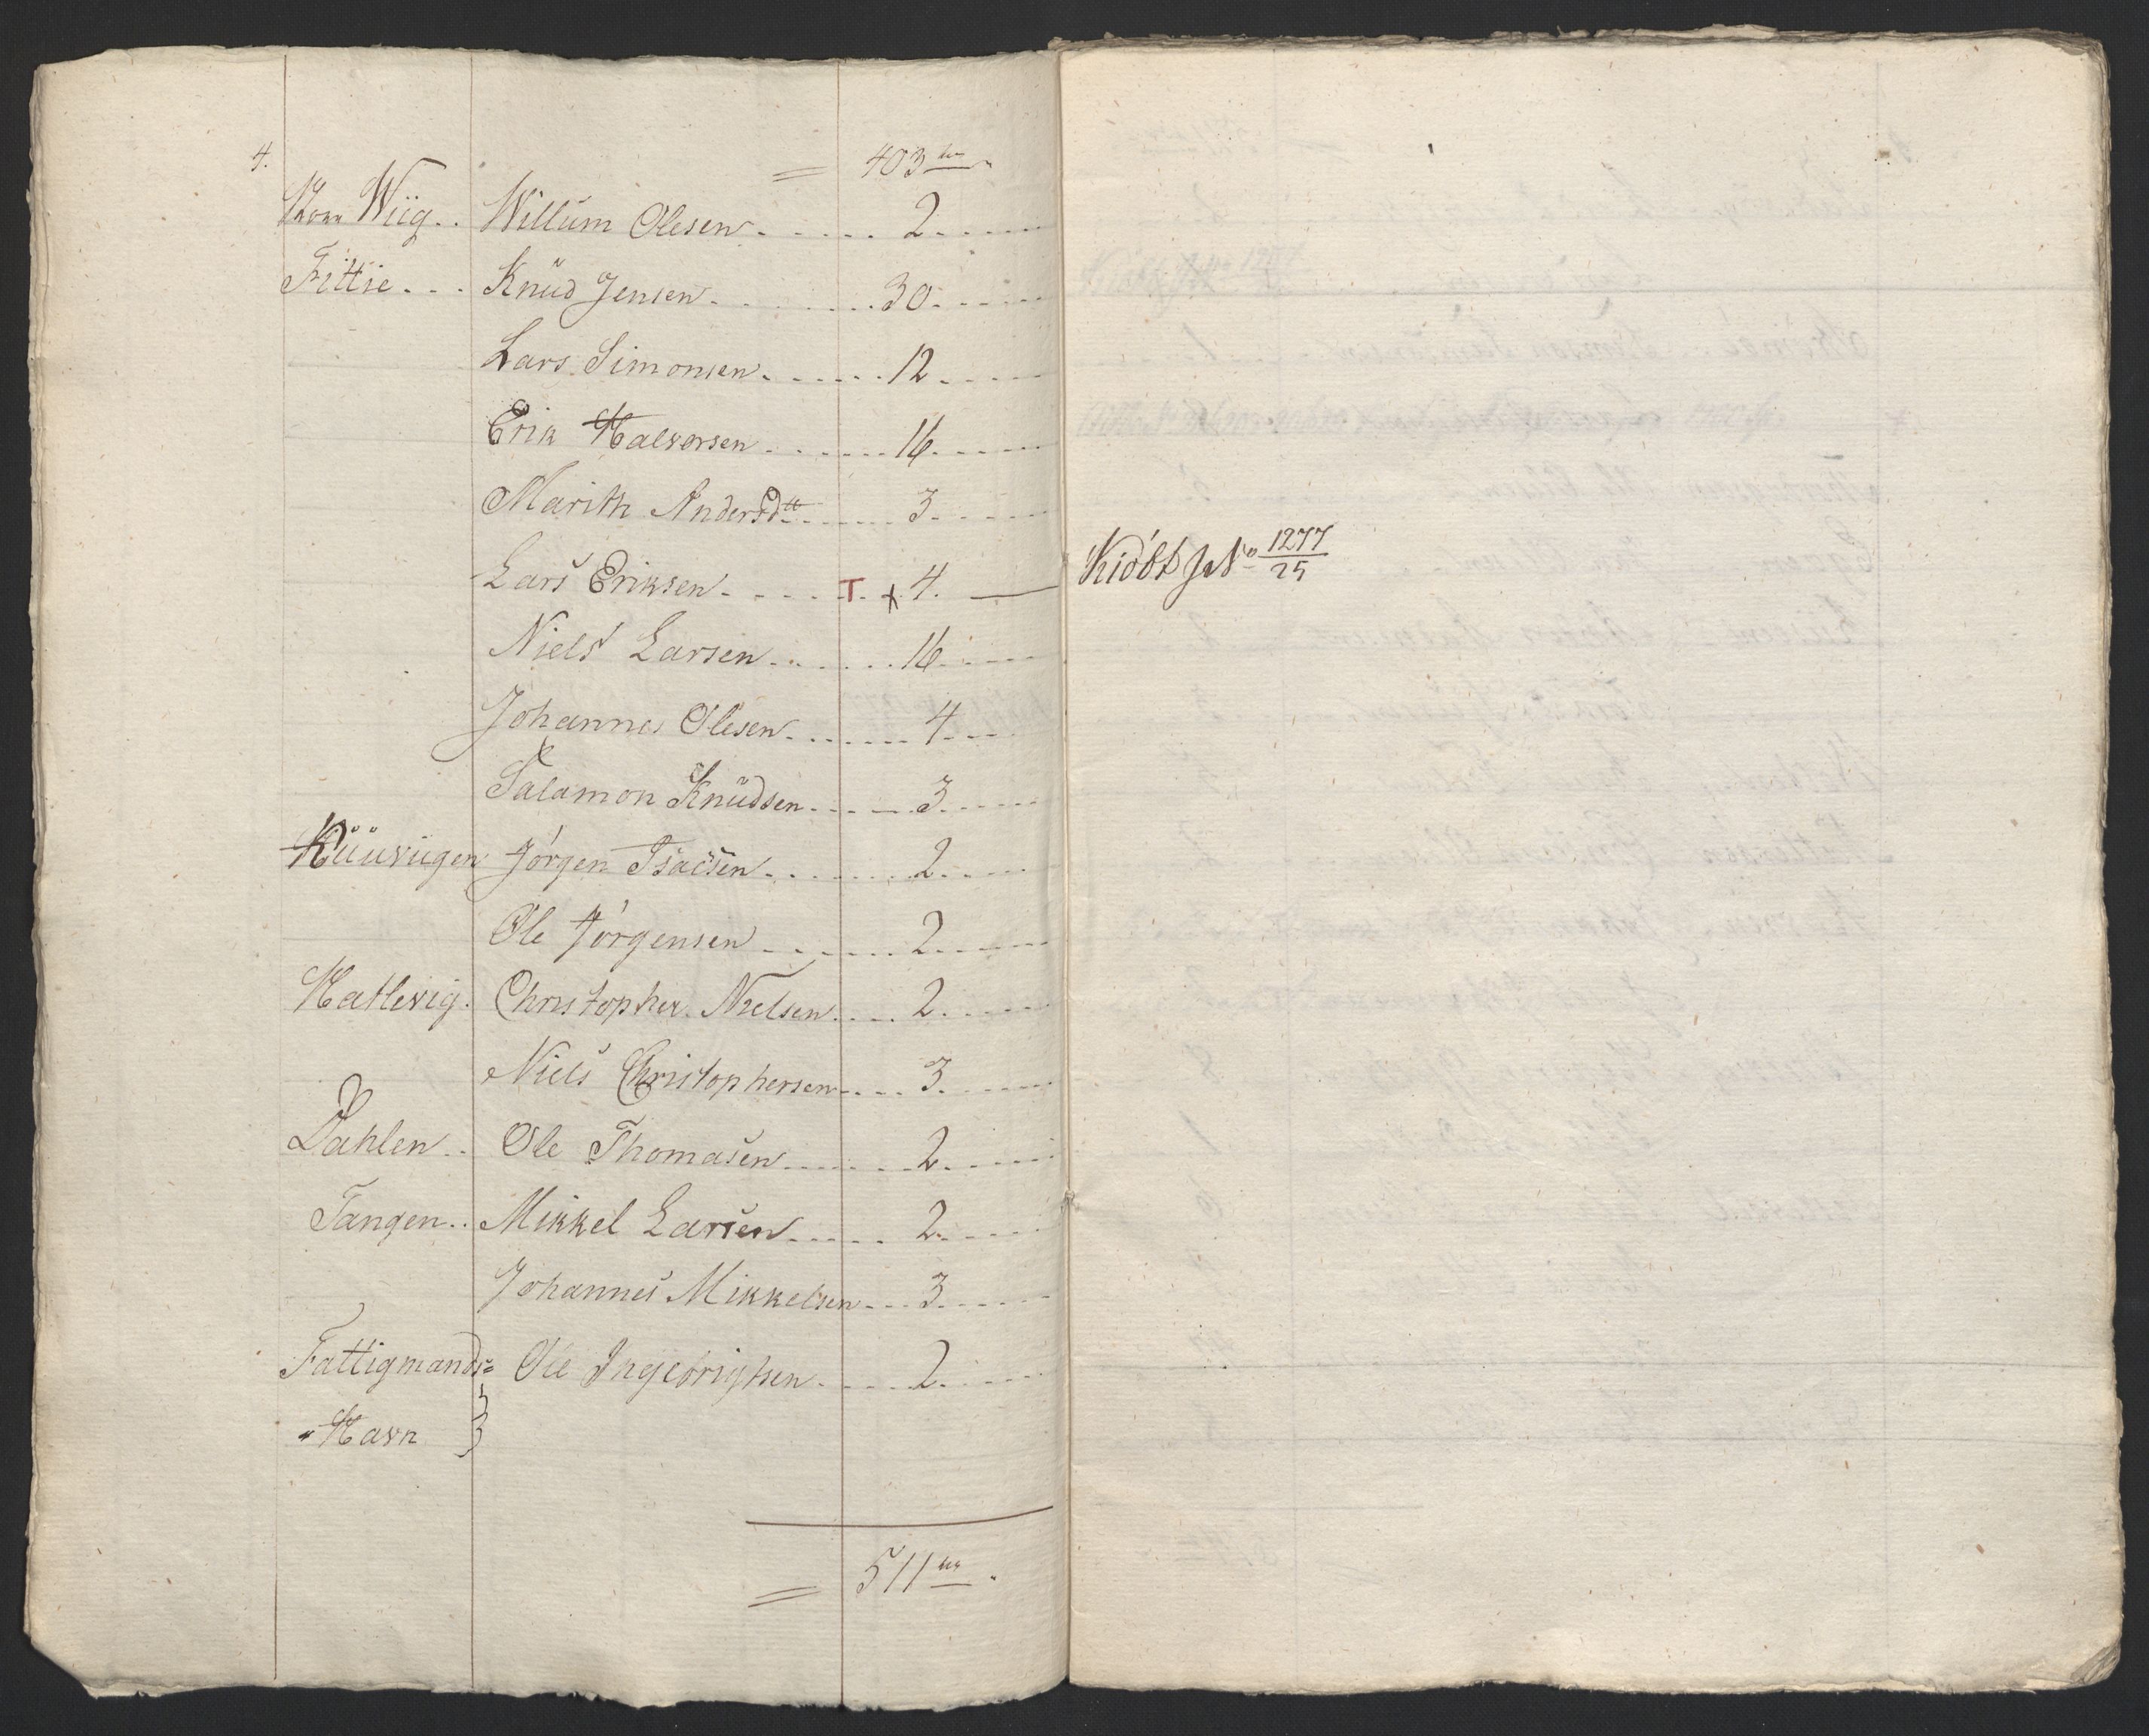 4.
= 403
Wiig.. Willum Olesen 2
Fittie... Knud Jensen 30
Lars Simonsen 12
Erik Halvorsen 16
Marith Andersd 3
Lars Eriksen T x 4. Kiøbt J No 1277/25
Niels Larsen 16
Johannes Olesen 4
Salamon Knüdsen 3
Jørgen Isacsen 2
Ole Jørgensen 2
Hatlevig. Christopher Nielsen 2
Niels Christophersen 3
Dahlen.. Ole Thomasen 2
Tangen.. Mikkel Larsen 2
Johannes Mikkelsen 3
Fattigmands= Ole Ingebrigtsen 2
"Havn }
= 511